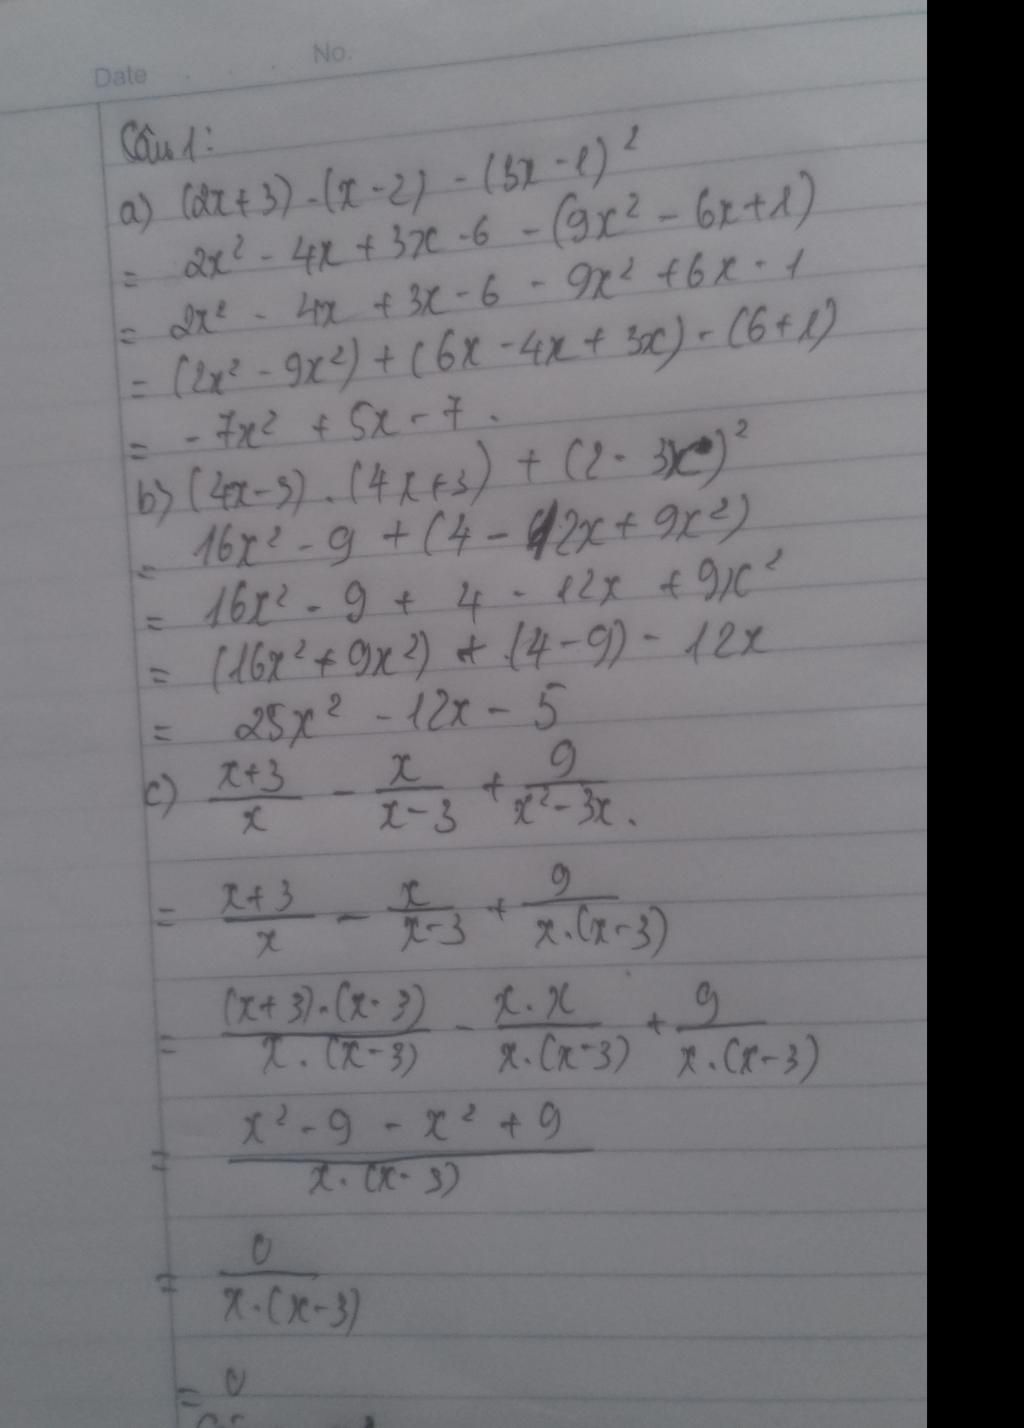 Date No.
Câu 1:
a) (2x+3).(x-2) - (3x-1)²
= 2x² - 4x + 3x - 6 - (9x² - 6x+1)
= 2x² - 4x + 3x - 6 - 9x² + 6x - 1
= (2x² - 9x²) + (6x - 4x + 3x) - (6+1)
= -7x² + 5x - 7.
b) (4x-3).(4x+3) + (2-3x)²
= 16x² - 9 + (4 - 12x + 9x²)
= 16x² - 9 + 4 - 12x + 9x²
= (16x² + 9x²) + (4-9) - 12x
= 25x² - 12x - 5
c) (x+3)/x - x/(x-3) + 9/(x²-3x).
= (x+3)/x - x/(x-3) + 9/(x.(x-3))
= ((x+3).(x-3))/(x.(x-3)) - (x.x)/(x.(x-3)) + 9/(x.(x-3))
= (x² - 9 - x² + 9)/(x.(x-3))
= 0/(x.(x-3))
= 0